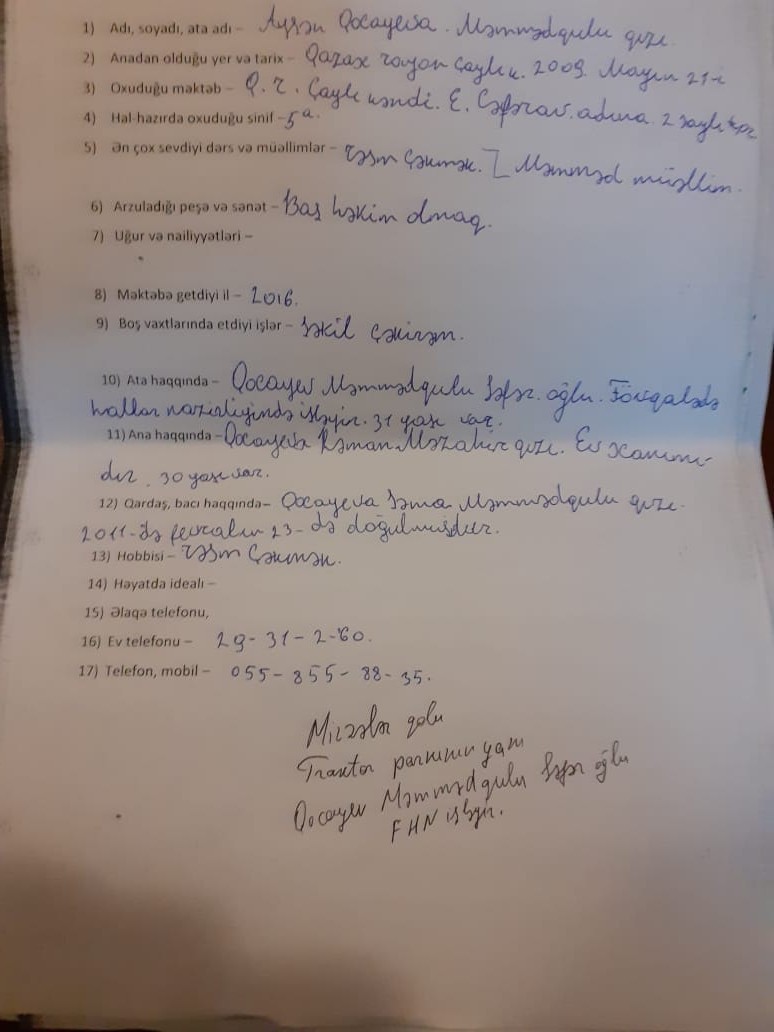 1) Adı, soyadı, ata adı – Ayşən Qocayeva. Məmmədqulu qızı.
2) Anadan olduğu yer və tarix – Qazax rayon Çaylı k. 2009. Mayın 21-i
3) Oxuduğu məktəb – Q. r. Çaylı kəndi. E. Səfərov. adına. 2 saylı
4) Hal-hazırda oxuduğu sinif – 5ª.
5) Ən çox sevdiyi dərs və müəllimlər – rəsm çəkmək. Məmməd müəllim.
6) Arzuladığı peşə və sənət – Baş həkim olmaq.
7) Uğur və nailiyyətləri –
8) Məktəbə getdiyi il – 2016.
9) Boş vaxtlarında etdiyi işlər – Şəkil çəkirəm.
10) Ata haqqında – Qocayev Məmmədqulu Səfər oğlu. Fövqəladə
hallar nazirliyində işləyir. 31 yaşı var.
11) Ana haqqında – Qocayeva Kəmalə Məzahir qızı. Ev xanımı-
dır. 30 yaşı var.
12) Qardaş, bacı haqqında – Qocayeva Səma Məmmədqulu qızı.
2011-də fevralın 23-də doğulmuşdur.
13) Hobbisi – rəsm çəkmək.
14) Həyatda idealı –
15) Əlaqə telefonu,
16) Ev telefonu – 29-31-2-60.
17) Telefon, mobil – 055-855-88-35.
Mirzələr yolu
Traktor parkının yanı
Qocayev Məmmədqulu Səfər oğlu
FHN işləyir.